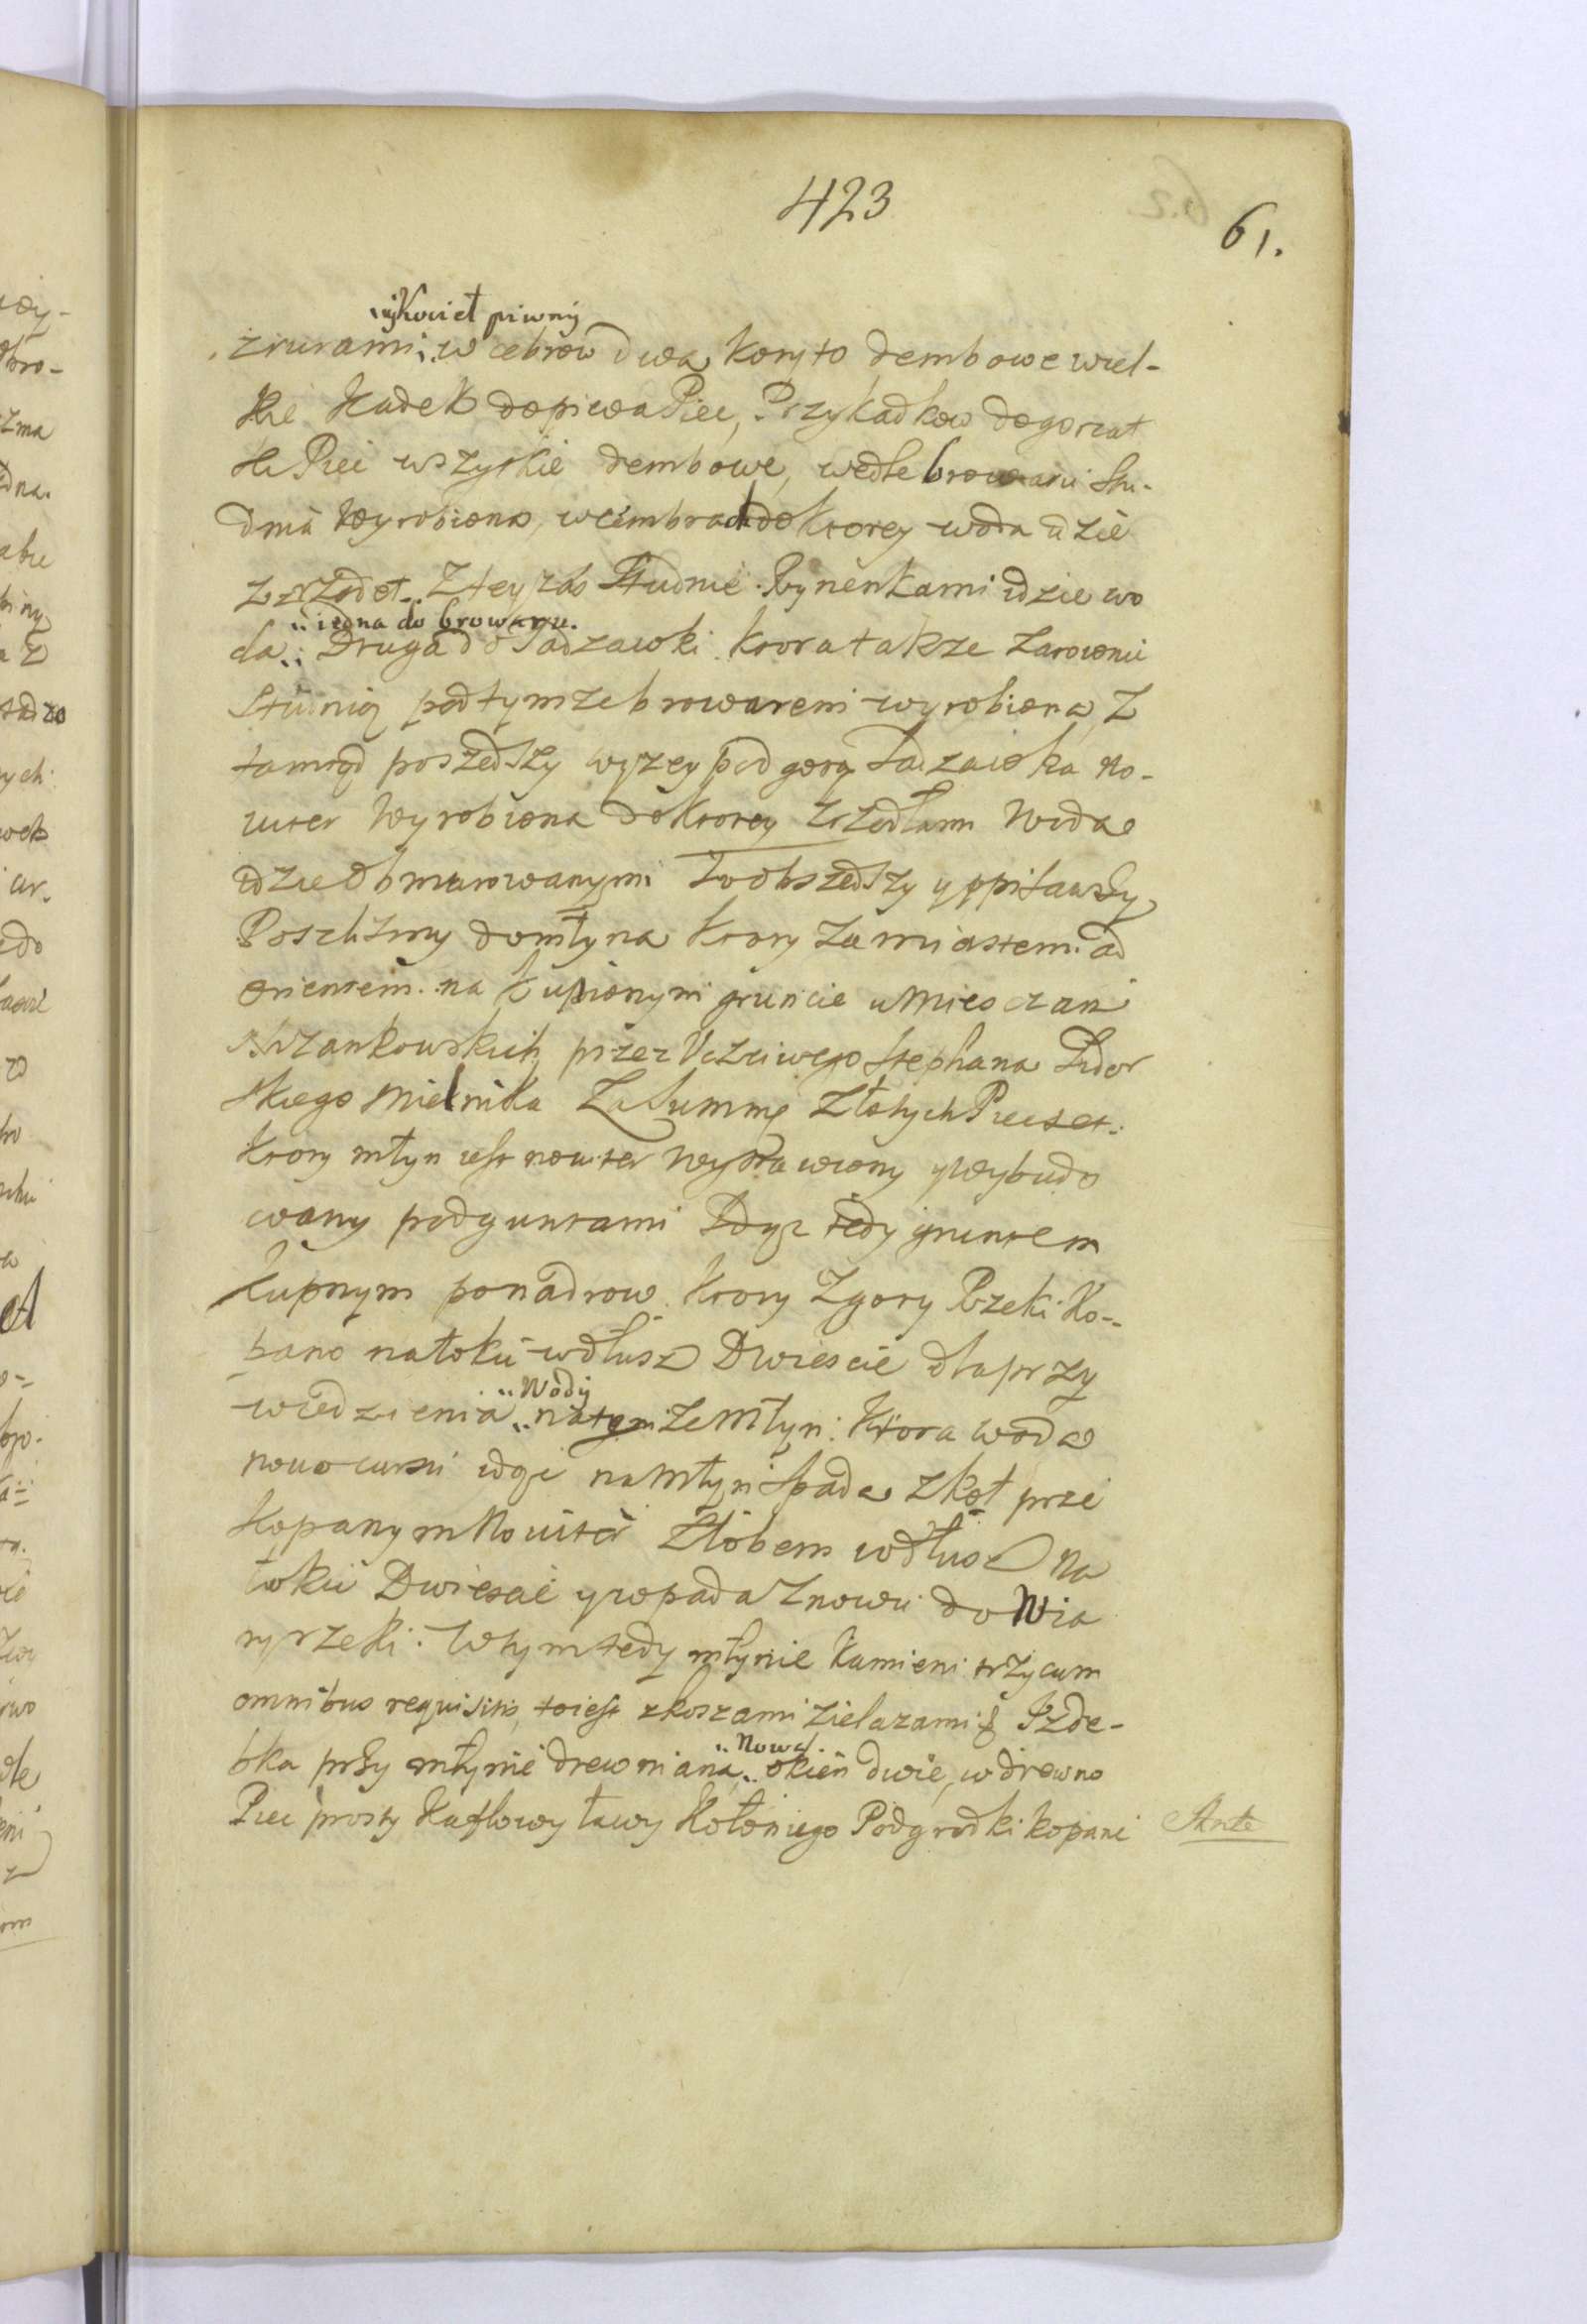 423
61.
y Kocieł piwny
zrurami, w cebrow dwa, koryto dembowe wiel-
kie Kadek dopiwa Piec, Przykadkow dogorzał
ki Piec wszyskie dembowe, wedle browaru Stu-
dnia wyrobiona, wcembrach do ktorey woda idzie
z zrzodeł. Ztey zas Studnie Rynenkami idzie wo
iedna do browaru.
da Druga do Sadzawki ktora takze zarowni
Studnią podtymze browarem wyrobiona, Z
tamtąd poszedszy wyzey pod gorą Sadzawka no-
uiter wyrobiona doktorey zrzodłami woda
idzie obmurowanymi To obszedszy y opisawszy
Poszlismy domłyna ktory za miastem ad
orientem na kupionym gruncie u Miesczan
przez Vczciwego Stephana
skiego Mielnika Za Summę Złotych Piecset.
ktory młyn iest nouiter wystawiony y wybudo
wany pod guntami Idąc tedy gruntem
kupnym ponad row ktory Zgory Rzeki Ko-
pano na łoku wdłusz Dwiescie dla przy
Wody
wiedzienia na tenze Młyn: Ktora woda
nouo cursu idąc na Młyn Spada z koł prze
kopanym Nouiter Złobem wdłusz na
łoku Dwiescie y wpada Znowu do Wia
ry rzeki. W tym tedy młynie Kamieni trzy cum
omnibus requisitis, toiest zkoszami zielazami &. Izde-
Nowa
bka przy młynie drewniana, okien dwie, w drewno
Piec prosty Kaflowy ławy Kołoniego Podgrodki kopani
Ante